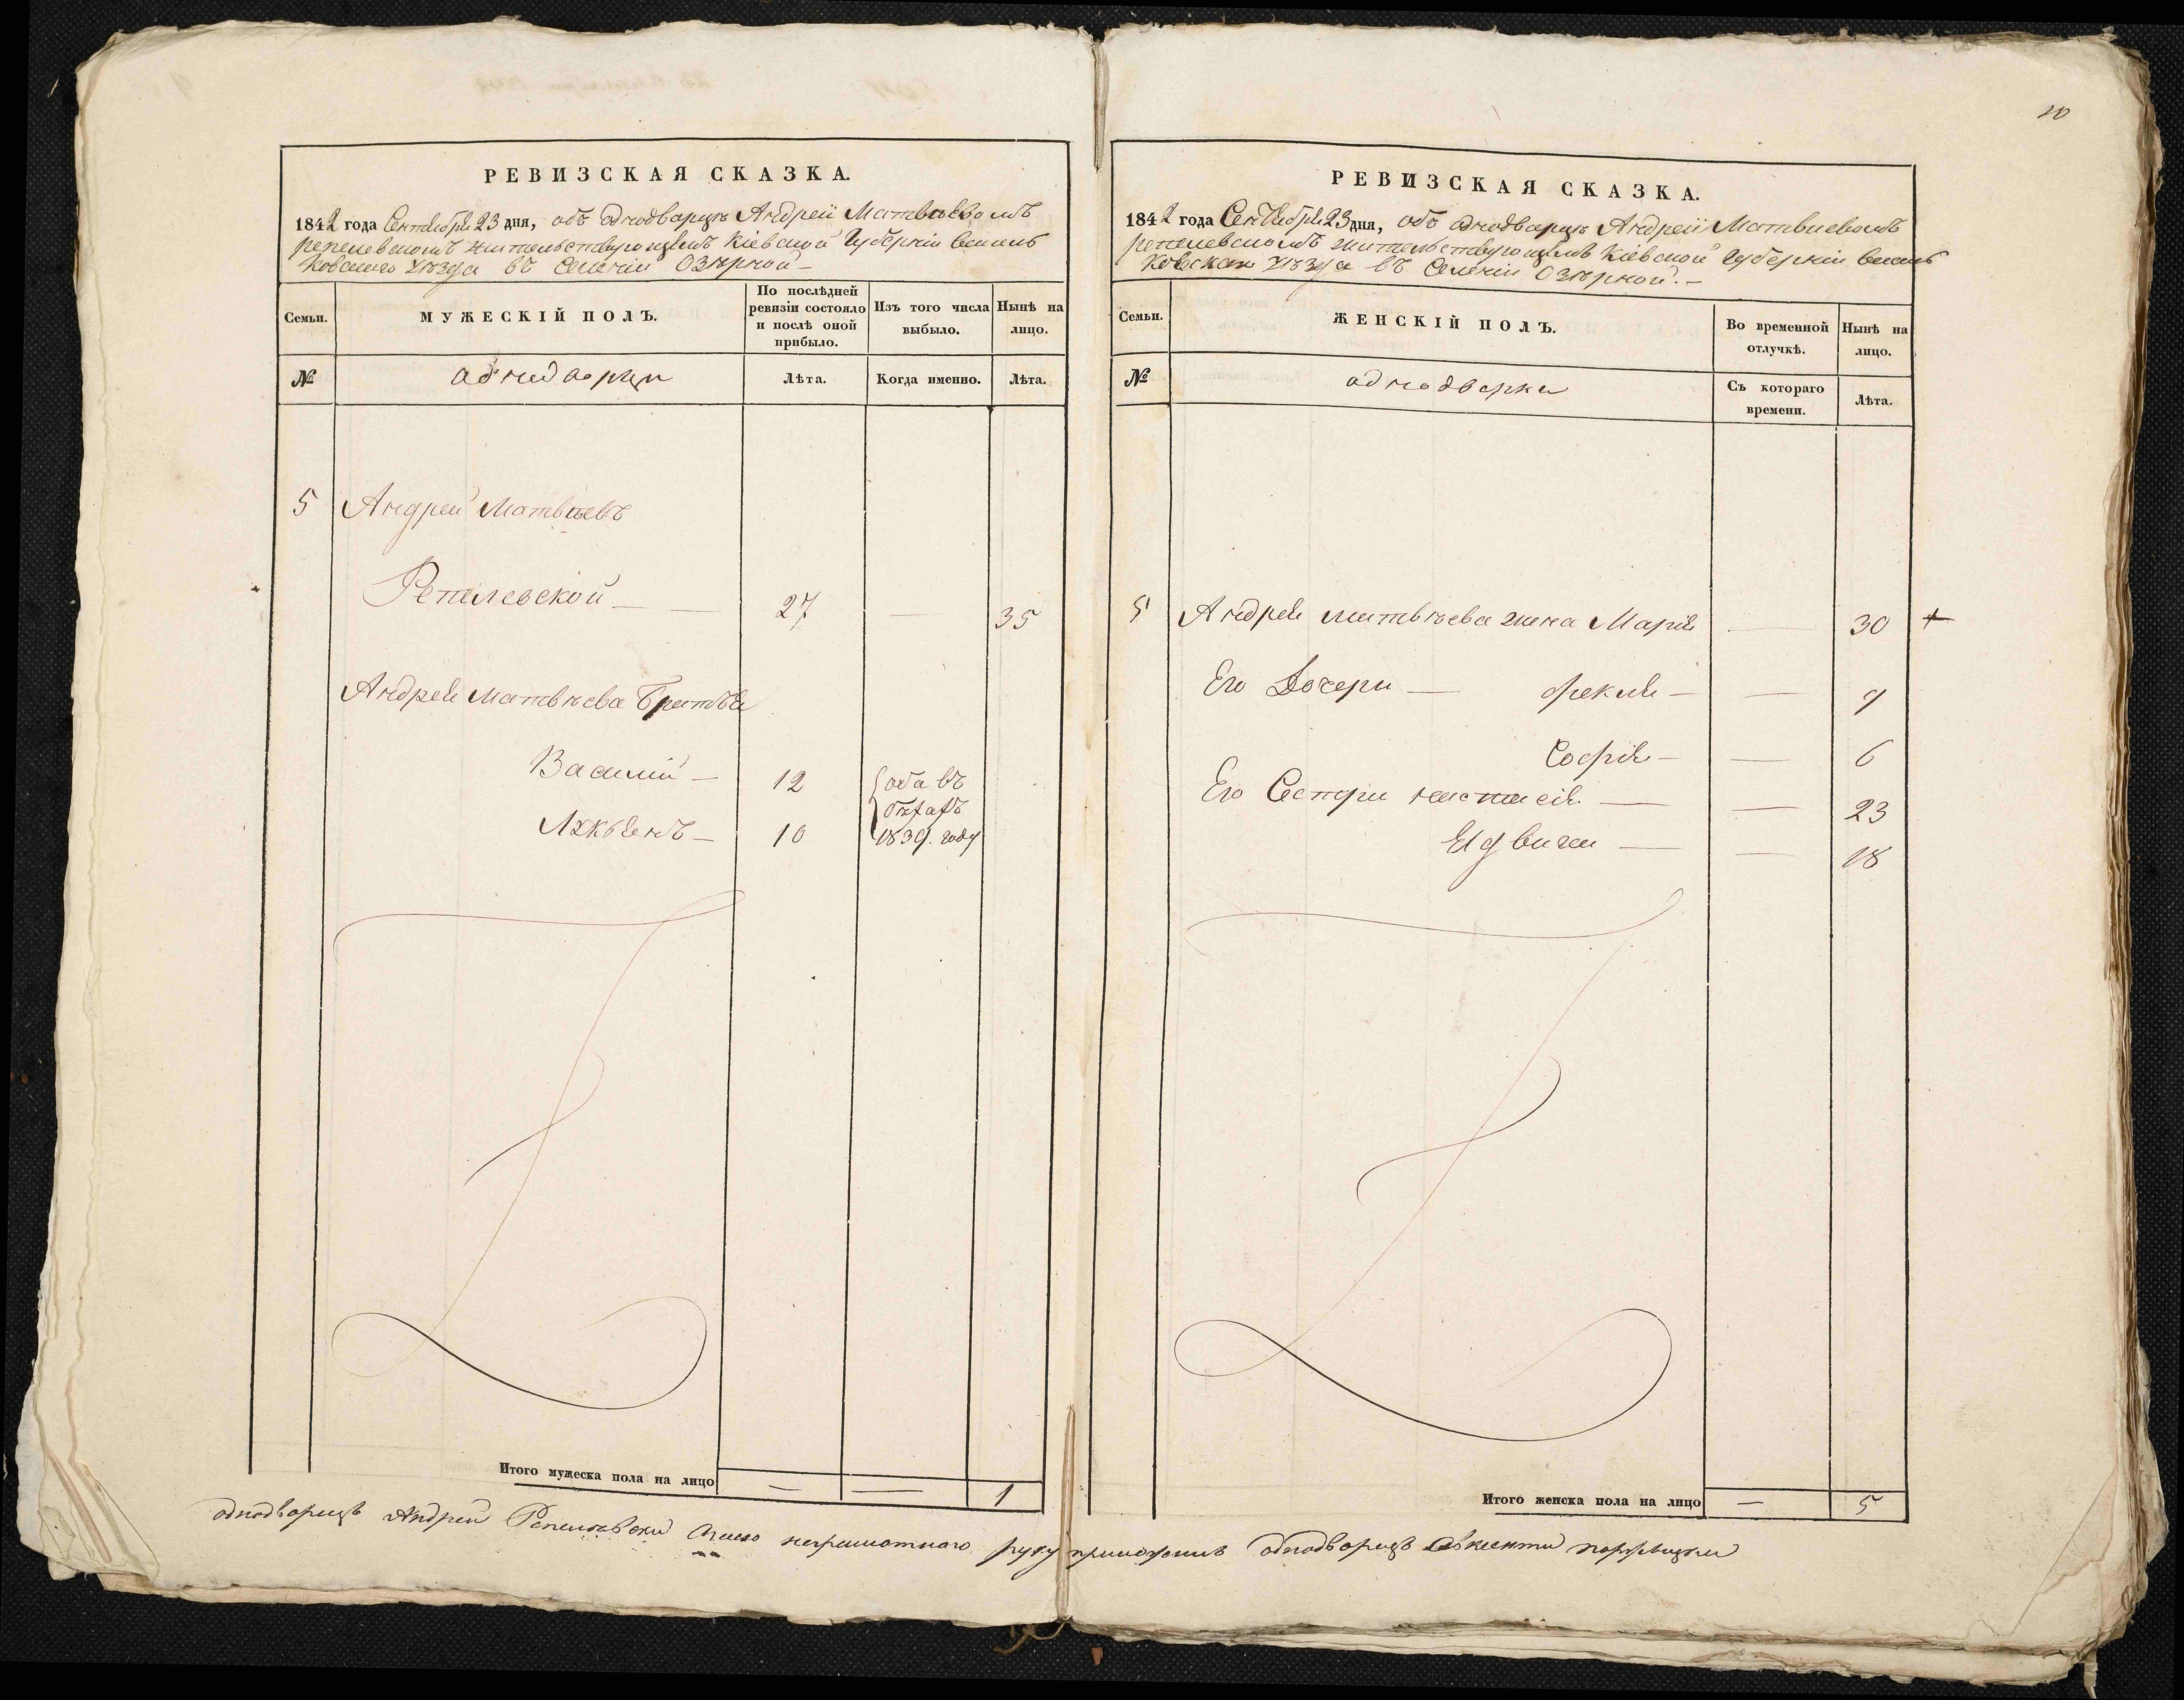 10
РЕВИЗСКАЯ СКАЗКА.
1842 года Сентября 23 дня, объ однодворцѣ Андреѣ Матвѣевомъ
репелевскомъ жительствующемъ Кіевской Губерніи Василь
ковскаго уѣзда въ Селеніи Озѣрной
Семьи.
МУЖЕСКІЙ ПОЛЪ.
По послѣдней ревизіи состояло и послѣ оной прибыло.
Изъ того числа выбыло.
Нынѣ на лицо.
№
однодворци
Лѣта.
Когда именно.
Лѣта.
5 Андрей Матвѣевъ
Репелевской — 27 — 35
Андрея Матвѣева Братья
Василій — 12 оба въ
бѣгахъ
10 1839. году
Итого мужеска пола на лицо — — 1
РЕВИЗСКАЯ СКАЗКА.
1842 года Сентября 23 дня, объ однодворцѣ Андреѣ Матвиевомъ
репелевскомъ жительствующемъ Кіевской Губерніи Василь
ковскаго уѣзда въ Селеніи Озѣрной. —
Семьи.
ЖЕНСКІЙ ПОЛЪ.
Во временной отлучкѣ.
Нынѣ на лицо.
№
однодворки
Съ котораго времени.
Лѣта.
5 Андрея Матвѣева жена Марія — 30 +
Его Дочери — Фекля — — 9
Софія — — 6
Его Сестри Настасія — — 23
Ядвига — — 18
Итого женска пола на лицо — 5
однодворецъ Андрей Репелевски неграмотнаго руку приложилъ однодворецъ